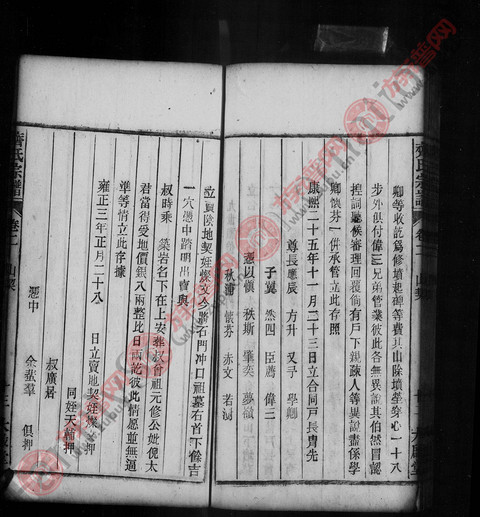 齊氏宗譜 卷 山契
卿等收訖爲修墳起碑等費其山除墳塋穿心一十八
步外俱付偉三兄弟管業彼此各無異說其伯然冒認
控詞屬候審理回覆倘後有戶下親疎人等異說盡係學
卿懷芬一併承管立此存照
康熙二十五年十一月二十三日立合同戶長胄先
尊長應辰 方升 又子 學卿
子翼 然四 臣薦 偉三
憑以愼 秩斯 肇奕
秋浦 懷芬 赤文 若
立賣陰地契姪燦文今將石門冲口祖墓右首下餘吉
一穴憑中踏明出賣與
叔時乘 築岩名下在上安葬叔曾祖元修公妣倪太
君當得受地價銀八兩整比日兩訖從此情愿並無逼
準等情立此存據
雍正三年正月二十八 日立賣地契姪燦 押
同姪天 押
叔廣居
憑中
金蜚羣 俱押
齊氏宗譜 卷 山契